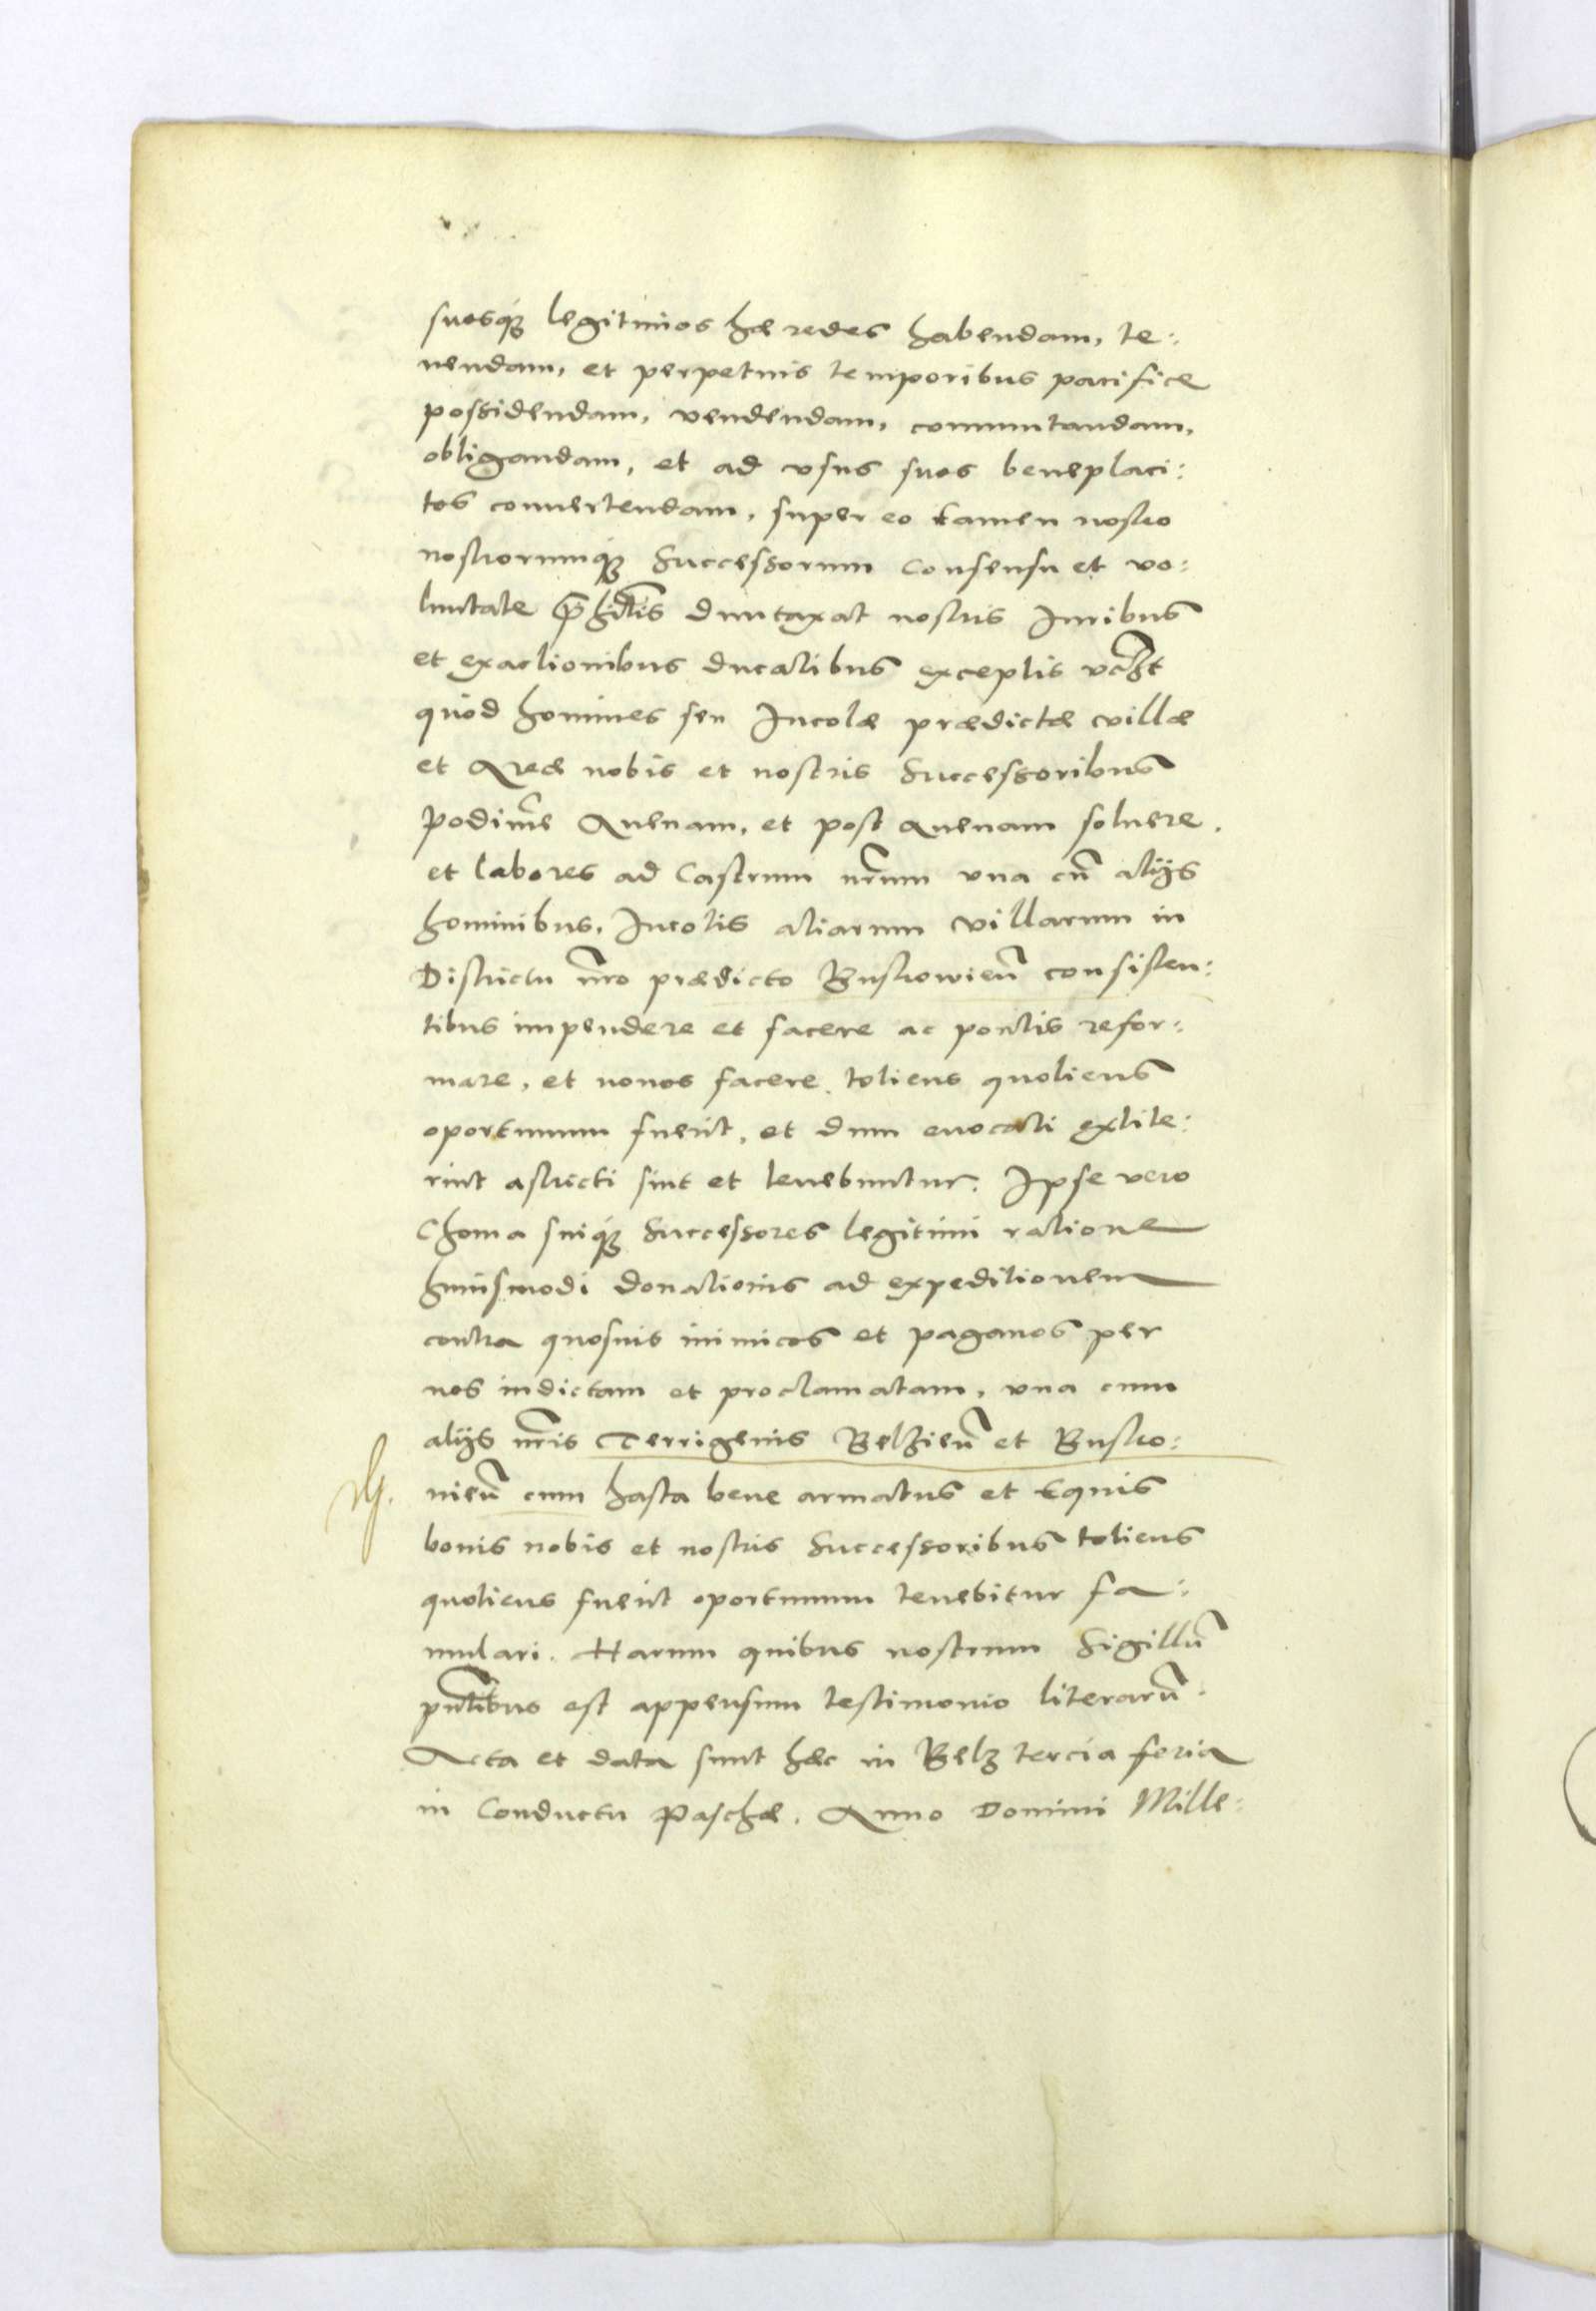 suosq́ꝫ legitimos hæredes habendam, te:
nendam, et perpetuis temporibus pacifice
possidendam, vendendam, commutandam,
obligandam, et ad vsus suos beneplaci:
tos conuertendam, super eo tamen nostro
nostrorumq́ꝫ Successorum consensu et vo:
luntate p̃hĩtis duntaxat nostris Iuribus
et exactionibus ducalibus exceptis vcꝫt
quod homines seu Incolæ prædictæ villæ
et Areæ nobis et nostris Successoribus
Podimẽ Auenam, et post auenam soluere,
et labores ad Castrum nr̃um vna cũ alijs
hominibus, Incolis aliarum villarum in
Districtu nr̃o prædicto Bustrowieñ consisten:
tibus impendere et facere ac pontis refor:
mare, et nouos facere, totiens quotiens
oportunum fuerit, et dum euocati extite:
rint astricti sint et tenebuntur. Ipse vero
Choma suiq́ꝫ Successores legitimi ratione
huiusmodi donationis ad expeditionem
contra quosuis inimicos et paganos per
nos indictam et proclamatam, vna cum
alijs nr̃is Terrigenis Belzieñ et Bustro:
uieñ cum hasta bene armatus et Equis
bonis nobis et nostris Successoribus totiens
quotiens fuerit oportunum tenebitur fa:
mulari. Harum quibus nostrum Sigillũ
pñtibus est appensum testimonio literarũ.
Acta et data sunt hæc in Belz tercia feria
in Conductu Paschæ. Anno Domini Mille: